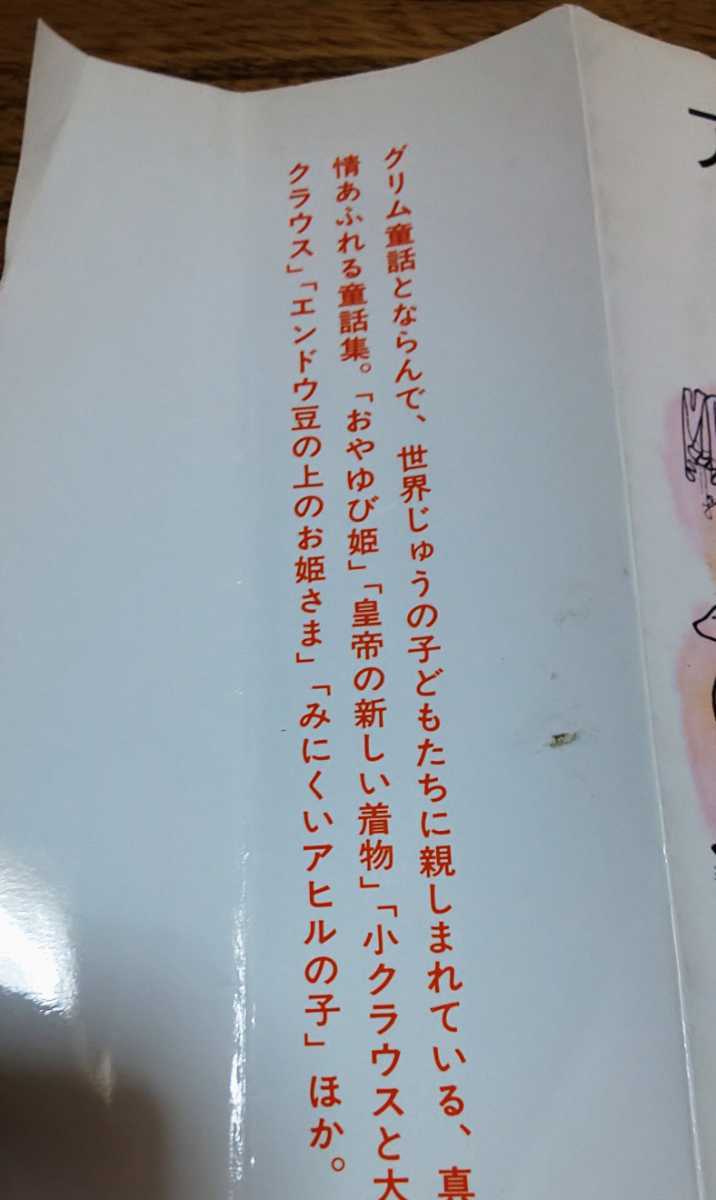 グリム童話とならんで、世界じゅうの子どもたちに親しまれている、真
情あふれる童話集。「おやゆび姫」「皇帝の新しい着物」「小クラウスと大
クラウス」「エンドウ豆の上のお姫さま」「みにくいアヒルの子」ほか。